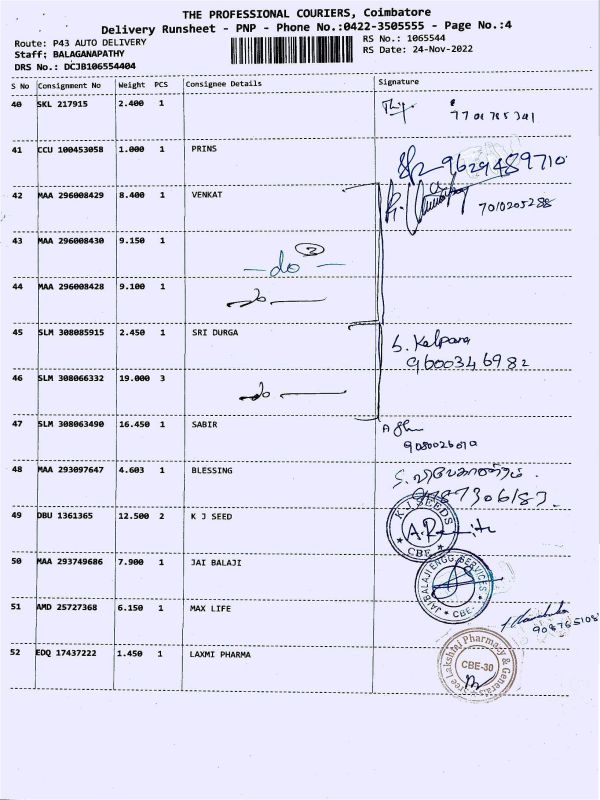 THE PROFESSIONAL COURIERS, Coimbatore
Delivery Runsheet - PNP - Phone No.:0422-3505555 - Page No.:4
Route: P43 AUTO DELIVERY
RS No.: 1065544
Staff: BALAGANAPATHY
RS Date: 24-Nov-2022
DRS No.: DCJB106554404
S No Consignment No Weight PCS Consignee Details Signature
40 SKL 217915 2.400 1
41 CCU 100453058 1.000 1 PRINS 9629489710
42 MAA 296008429 8.400 1 VENKAT 7010205288
43 MAA 296008430 9.150 1 -do- 3
44 MAA 296008428 9.100 1 do
45 SLM 308085915 2.450 1 SRI DURGA S. Kalpana
9600346982
46 SLM 308066332 19.000 3 do
47 SLM 308063490 16.450 1 SABIR
48 MAA 293097647 4.603 1 BLESSING
49 DBU 1361365 12.500 2 K J SEED
K J SEEDS
CBE
50 MAA 293749686 7.900 1 JAI BALAJI
JAI BALAJI ENGG SERVICES
CBE
51 AMD 25727368 6.150 1 MAX LIFE
52 EDQ 17437222 1.450 1 LAXMI PHARMA
Sree Lakshmi Pharmacy & Generals
CBE-30